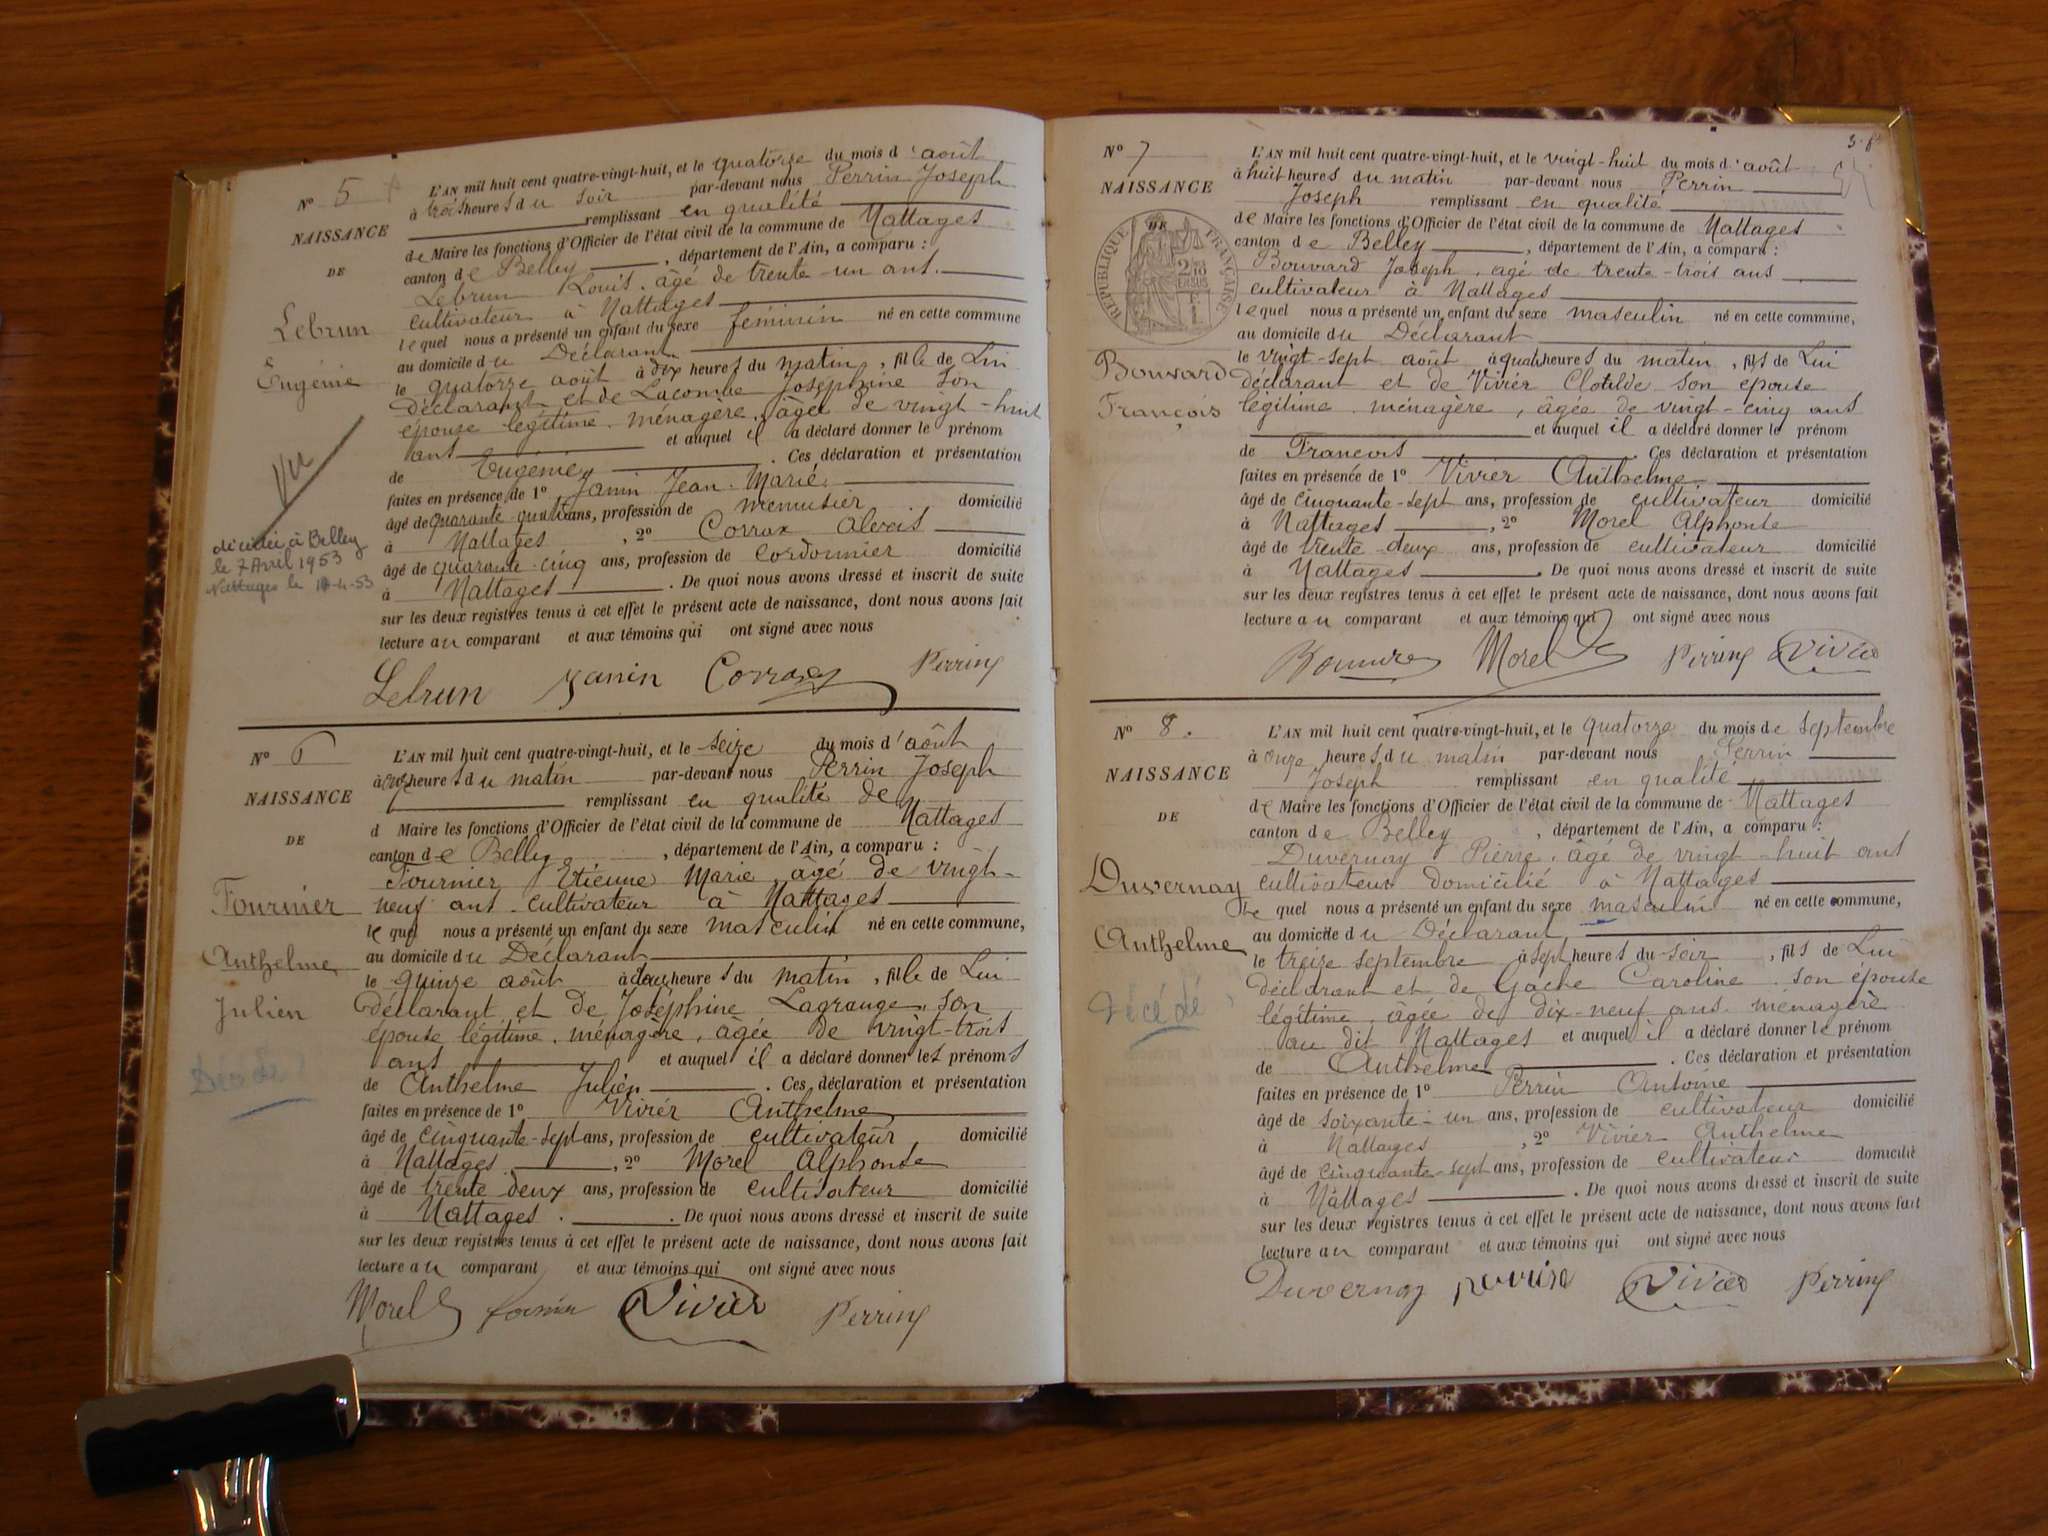 N° 5
NAISSANCE
DE
Lebrun
Eugénie
Vu
décédée à Belley
le 7 Avril 1953
Nattages le
L'AN mil huit cent quatre-vingt-huit, et le quatorze du mois d'août
à trois heures du soir par-devant nous Perrin Joseph
remplissant en qualité
de Maire les fonctions d'Officier de l'état civil de la commune de Nattages
canton de Belley, département de l'Ain, a comparu :
Lebrun Louis, âgé de trente-un ans
cultivateur à Nattages
lequel nous a présenté un enfant du sexe féminin né en cette commune
au domicile du Déclarant
le quatorze août à dix heures du matin, fille de Lui
déclarant et de Lacombe Joséphine son
épouse légitime, ménagère, âgée de vingt-huit
ans et auquel il a déclaré donner le prénom
de Eugénie. Ces déclaration et présentation
faites en présence de 1° Janin Jean-Marie
âgé de quarante-quatre ans, profession de menuisier domicilié
à Nattages, 2° Corrax Alexis
âgé de quarante-cinq ans, profession de cordonnier domicilié
à Nattages. De quoi nous avons dressé et inscrit de suite
sur les deux registres tenus à cet effet le présent acte de naissance, dont nous avons fait
lecture au comparant et aux témoins qui ont signé avec nous
Lebrun Janin Corrax Perrin
N° 6
NAISSANCE
DE
Fournier
Anthelme
Julien
L'AN mil huit cent quatre-vingt-huit, et le seize du mois d'août
à onze heures du matin par-devant nous Perrin Joseph
remplissant en qualité de
d Maire les fonctions d'Officier de l'état civil de la commune de Nattages
canton de Belley, département de l'Ain, a comparu :
Fournier Etienne Marie, âgé de vingt-
neuf ans cultivateur à Nattages
lequel nous a présenté un enfant du sexe masculin né en cette commune,
au domicile du Déclarant
le quinze août à heures du matin, fils de Lui
déclarant et de Joséphine Lagrange, son
épouse légitime, ménagère, âgée de vingt-trois
ans et auquel il a déclaré donner les prénoms
de Anthelme Julien. Ces déclaration et présentation
faites en présence de 1° Vivier Anthelme
âgé de cinquante-sept ans, profession de cultivateur domicilié
à Nattages, 2° Morel Alphonse
âgé de trente-deux ans, profession de cultivateur domicilié
à Nattages. De quoi nous avons dressé et inscrit de suite
sur les deux registres tenus à cet effet le présent acte de naissance, dont nous avons fait
lecture au comparant et aux témoins qui ont signé avec nous
Morel Vivier Perrin
N° 7
NAISSANCE
DE
RÉPUBLIQUE FRANÇAISE
Bouvard
François
L'AN mil huit cent quatre-vingt-huit, et le vingt-huit du mois d'août
à huit heures du matin par-devant nous Perrin
Joseph remplissant en qualité
de Maire les fonctions d'Officier de l'état civil de la commune de Nattages
canton de Belley, département de l'Ain, a comparu :
Bouvard Joseph, âgé de trente-trois ans
cultivateur à Nattages
lequel nous a présenté un enfant du sexe masculin né en cette commune,
au domicile du Déclarant
le vingt-sept août à quatre heures du matin, fils de Lui
déclarant et de Vivier Clotilde son épouse
légitime, ménagère, âgée de vingt-cinq ans
et auquel il a déclaré donner le prénom
de François. Ces déclaration et présentation
faites en présence de 1° Vivier Anthelme
âgé de cinquante-sept ans, profession de cultivateur domicilié
à Nattages, 2° Morel Alphonse
âgé de trente-deux ans, profession de cultivateur domicilié
à Nattages. De quoi nous avons dressé et inscrit de suite
sur les deux registres tenus à cet effet le présent acte de naissance, dont nous avons fait
lecture au comparant et aux témoins qui ont signé avec nous
Morel Perrin Vivier
N° 8.
NAISSANCE
DE
Duvernay
Anthelme
Décédé
L'AN mil huit cent quatre-vingt-huit, et le quatorze du mois de septembre
à onze heures du matin par-devant nous Perrin
Joseph remplissant en qualité
de Maire les fonctions d'Officier de l'état civil de la commune de Nattages
canton de Belley, département de l'Ain, a comparu :
Duvernay Pierre, âgé de vingt-huit ans
cultivateur domicilié à Nattages
Le quel nous a présenté un enfant du sexe masculin né en cette commune,
au domicile du Déclarant
le treize septembre à sept heures du soir, fils de Lui
déclarant et de Gache Caroline son épouse
légitime, âgée de dix-neuf ans ménagère
au dit Nattages et auquel il a déclaré donner le prénom
de Anthelme. Ces déclaration et présentation
faites en présence de 1° Perrin Antoine
âgé de soixante-un ans, profession de cultivateur domicilié
à Nattages, 2° Vivier Anthelme
âgé de cinquante-sept ans, profession de cultivateur domicilié
à Nattages. De quoi nous avons dressé et inscrit de suite
sur les deux registres tenus à cet effet le présent acte de naissance, dont nous avons fait
lecture au comparant et aux témoins qui ont signé avec nous
Duvernay Perrin Vivier Perrin